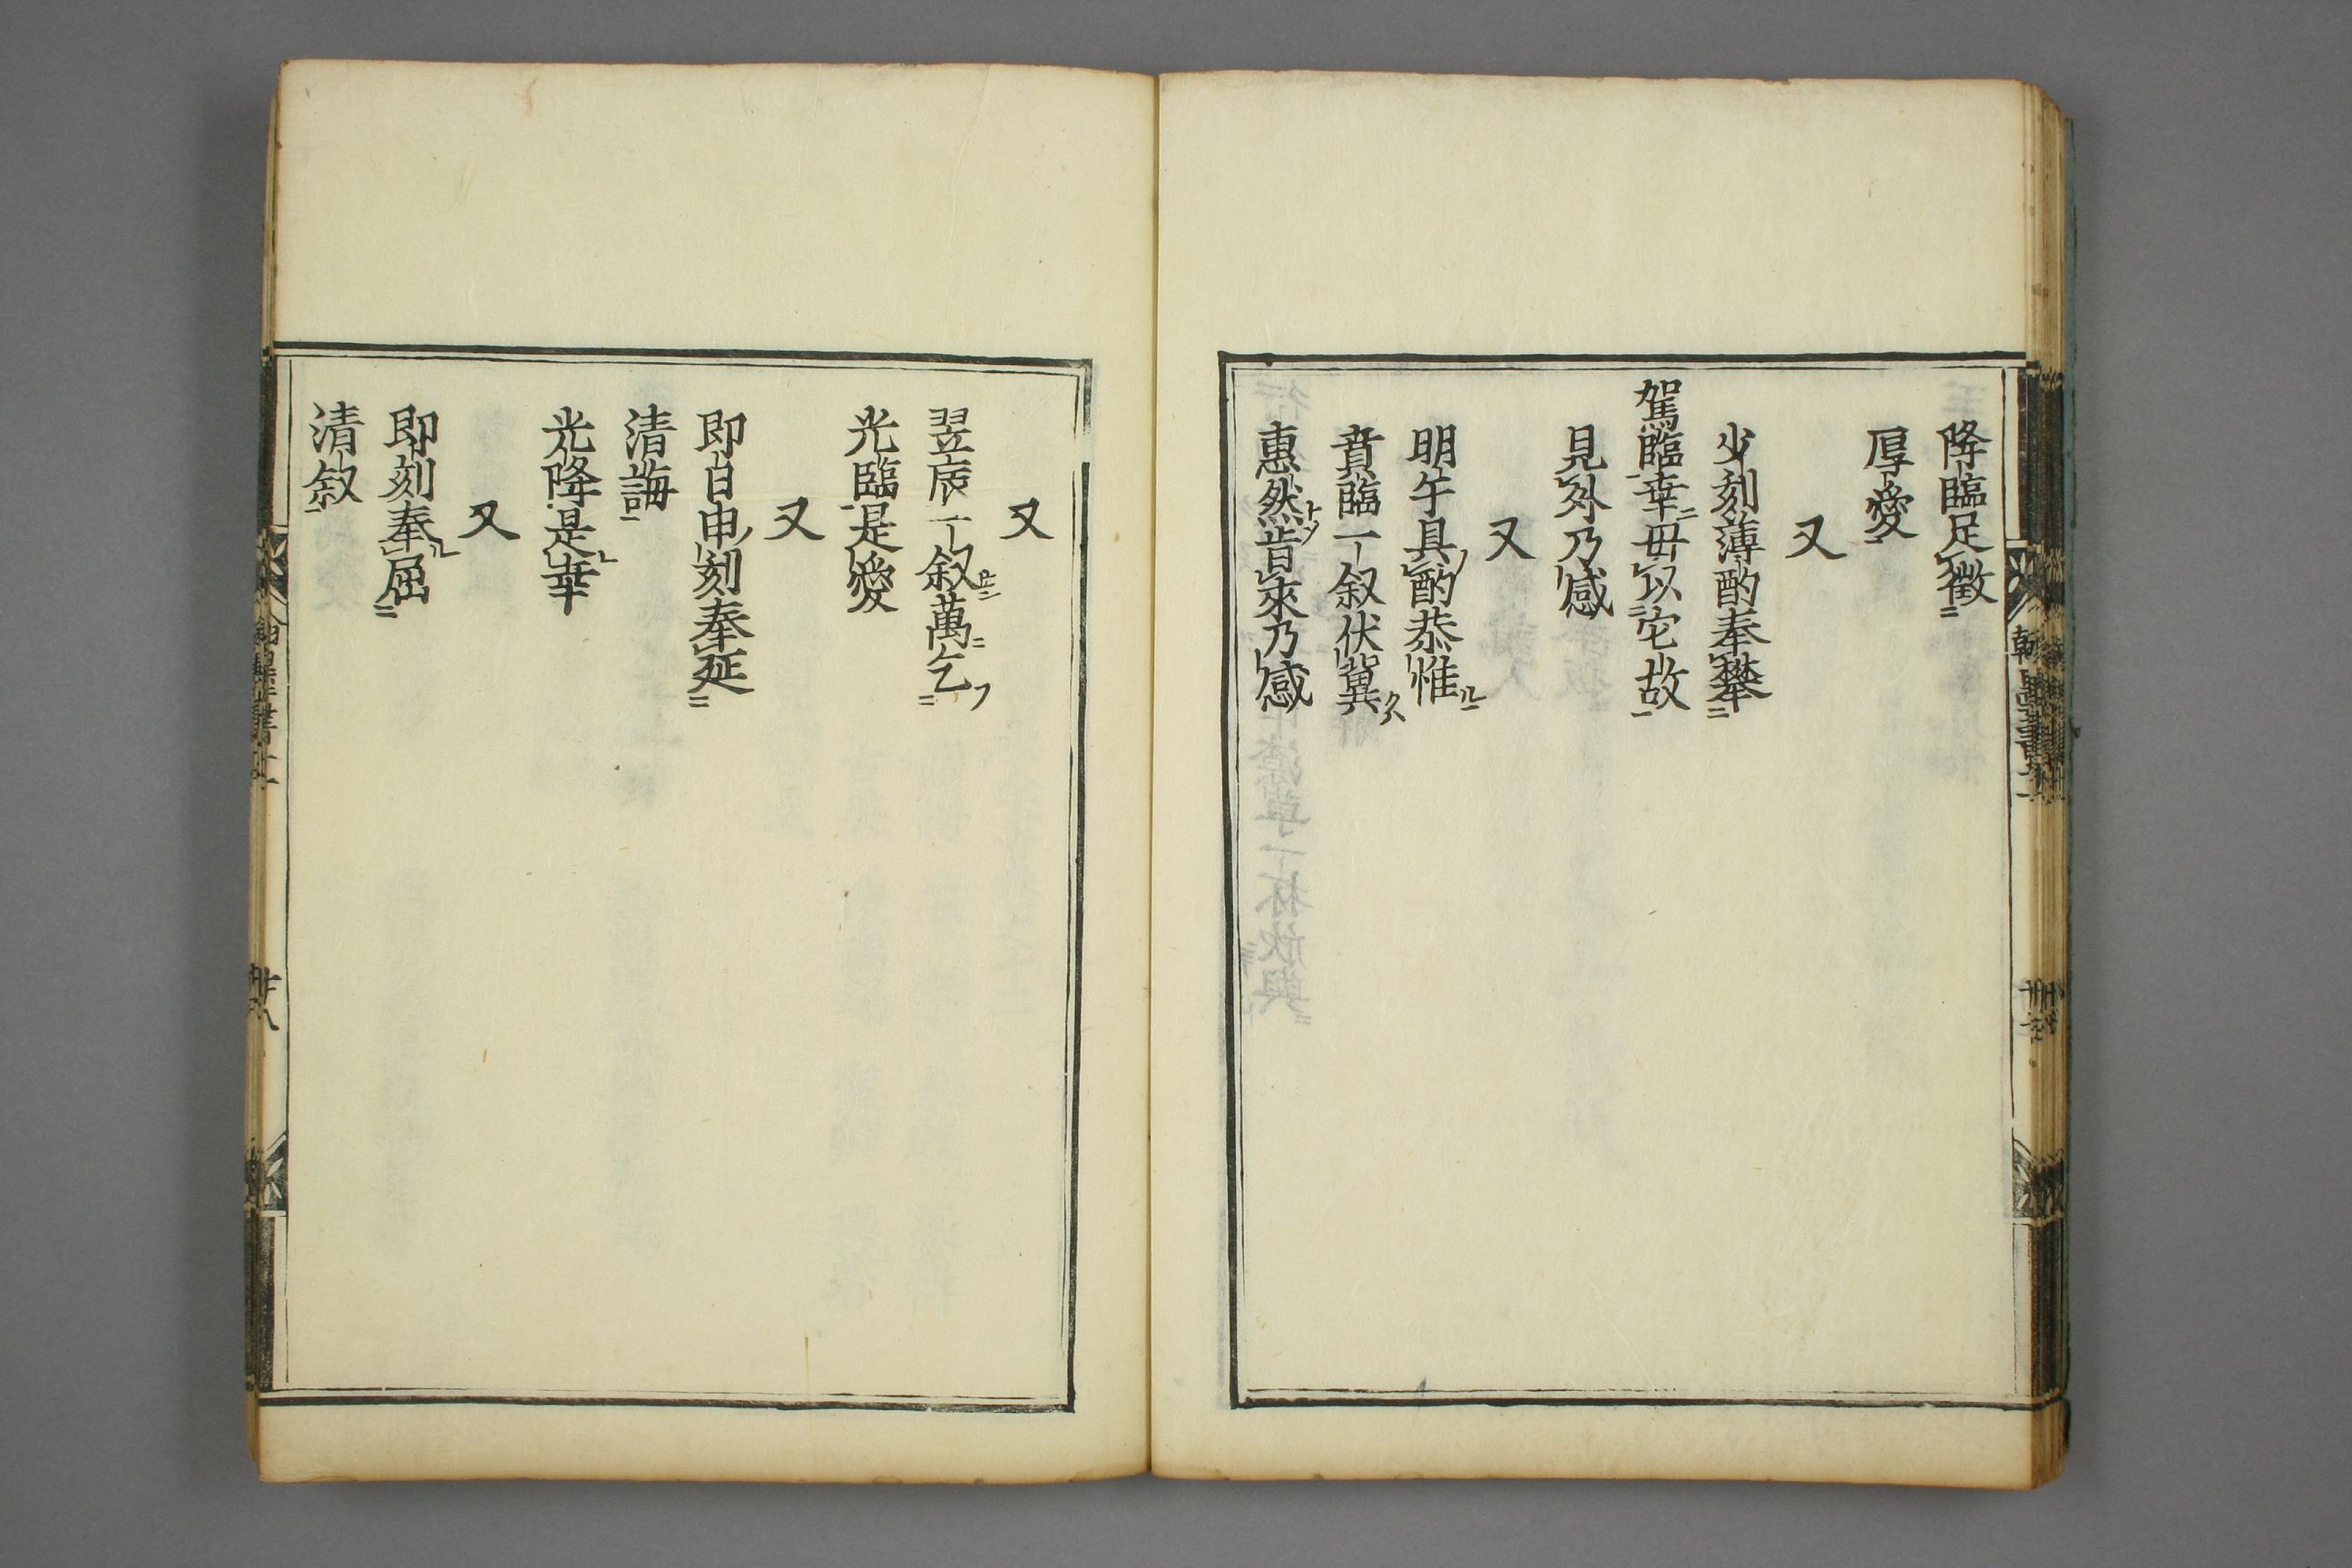 降臨足徵
厚愛
又
少刻薄酌奉攀
駕臨幸毋以它故
見外乃感
又
明午具酌恭惟
賁臨一叙伏冀
惠然肯來乃感
又
翌辰一叙萬乞
光臨是愛
又
即日申刻奉延
清誨
光降是幸
又
即刻奉屈
清叙
廿八